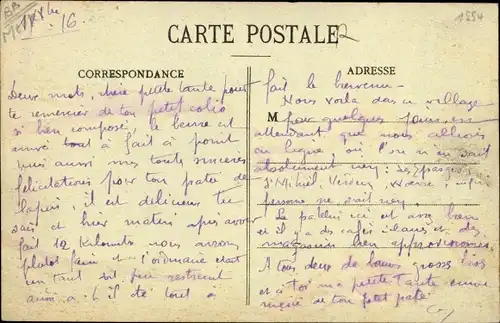 16
1554
CARTE POSTALE
CORRESPONDANCE
ADRESSE
M
Deux mots, chère petite tante pour
te remercier de ton petit colis
si bien composé. le beurre est
arrivé tout à fait à point
mais aussi mes toutes sincères
félicitations pour ton pâté de
lapin, il est délicieux tu
sais et hier matin après avoir
fait 12 kilomts nous avions
plutôt faim et l'ordinaire était
un tant soit peu restreint
aussi a-t-il été tout à
fait le bienvenu.
Nous voilà dans ce village
pour quelques jours en
attendant que nous allions
en ligne, où l'on n'en sait
absolument rien;
St Mihiel, Verdun,
personne ne sait rien.
Le patelin ici est assez bien
et il y a des cafés et des
magasins bien approvisionnés.
A tous deux de bons gros bisos
et à toi ma petite tante encore
merci de ton petit pâté